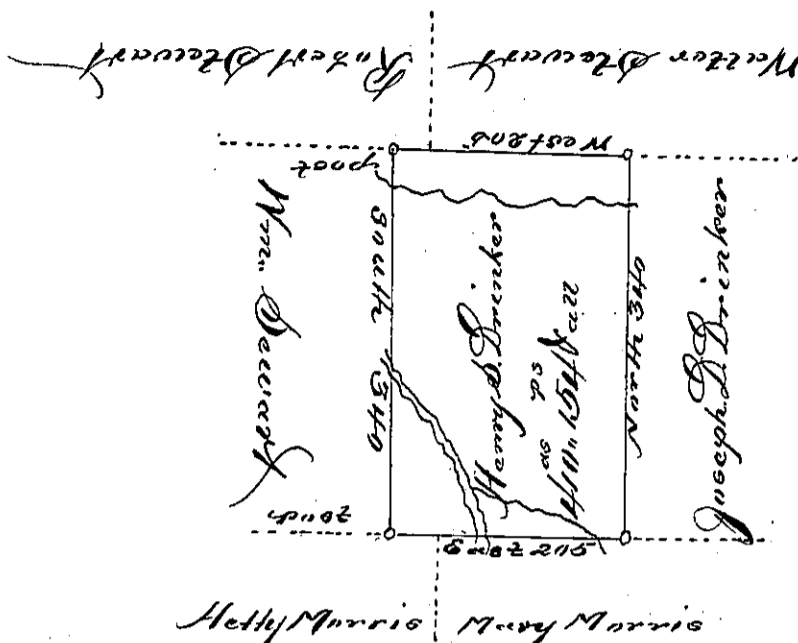 Robert Stewart
Walter Stewart
West 205
post
Wm. Stewart
South 340
Henry S. Drinker
North 340
Joseph D. Drinker
East 205
Hetty Morris
Mary Morris